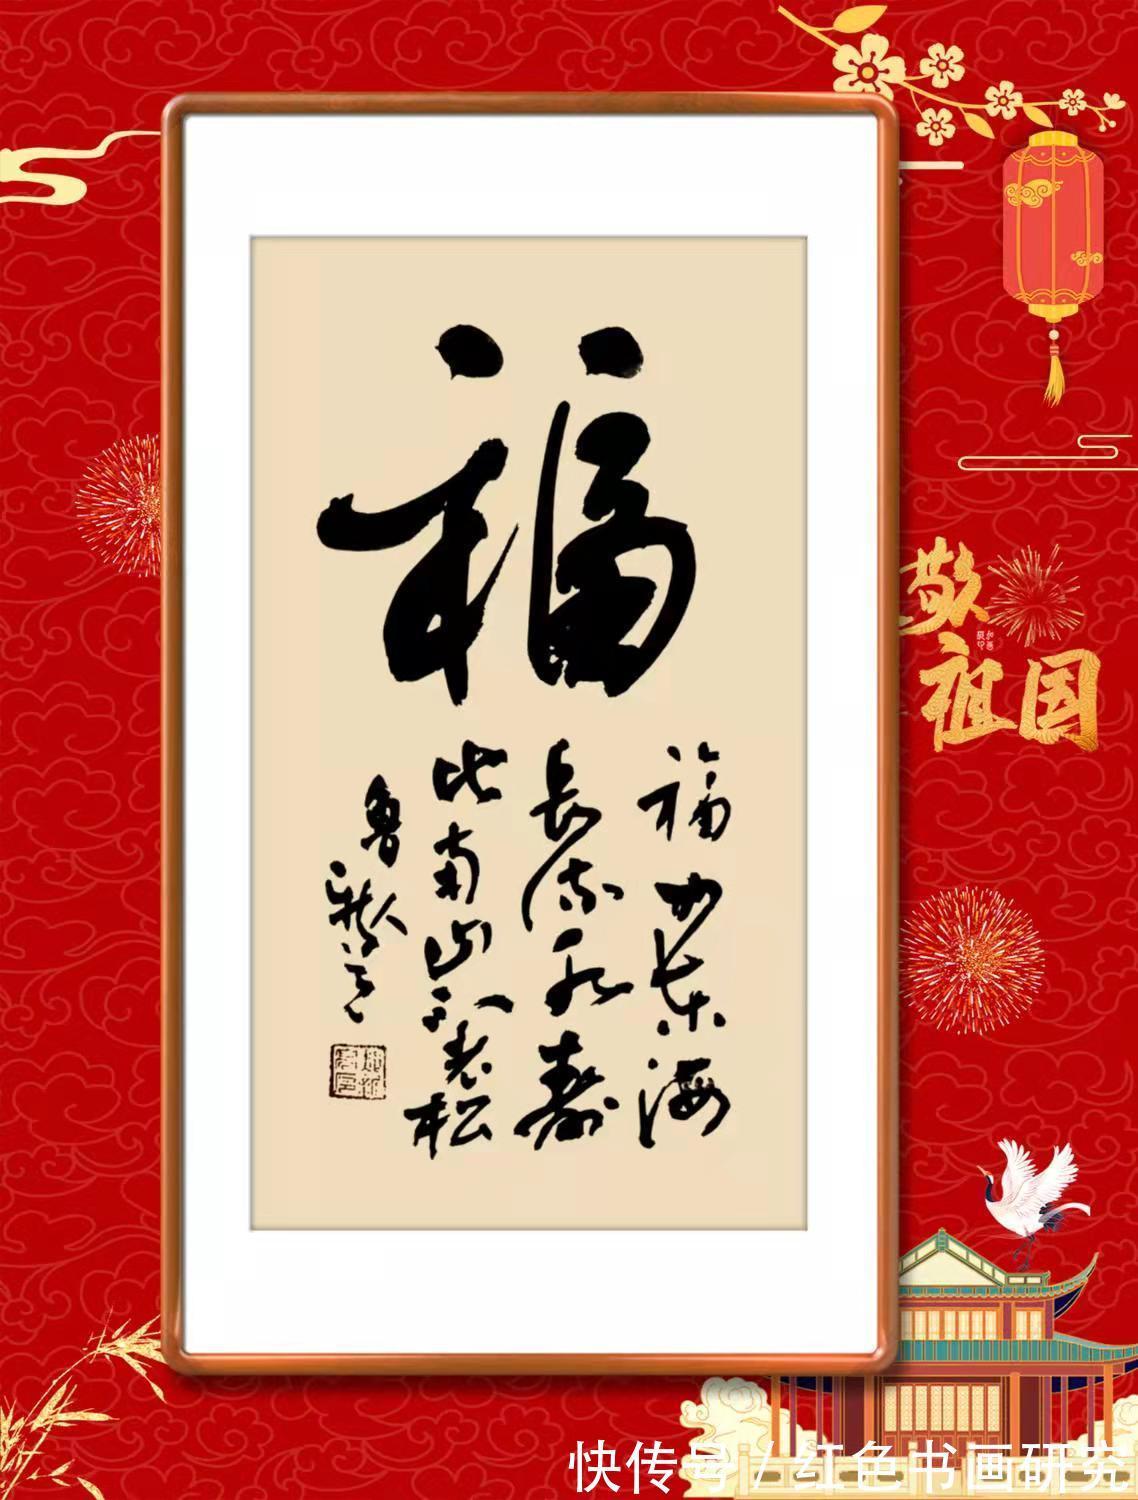 福
福如东海
長流水寿
比南山不老松
鲁
敬
祖国
快传号/红色书画研究